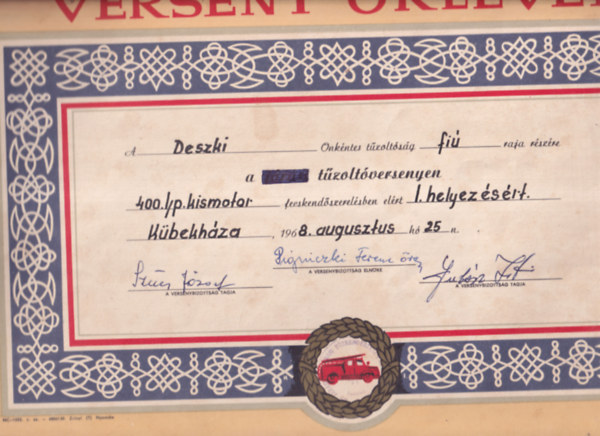 VERSENY OKLEVÉL
A Deszki Önkéntes tűzoltóság fiú raja részére
a tűzoltóversenyen
400.l/p.kismotor fecskendőszerelésben elért I. helyezésért.
Kübekháza, 1968. augusztus hó 25 n.
Szűcs József
Ferenc
A VERSENYBIZOTTSÁG TAGJA
A VERSENYBIZOTTSÁG ELNÖKE
A VERSENYBIZOTTSÁG TAGJA